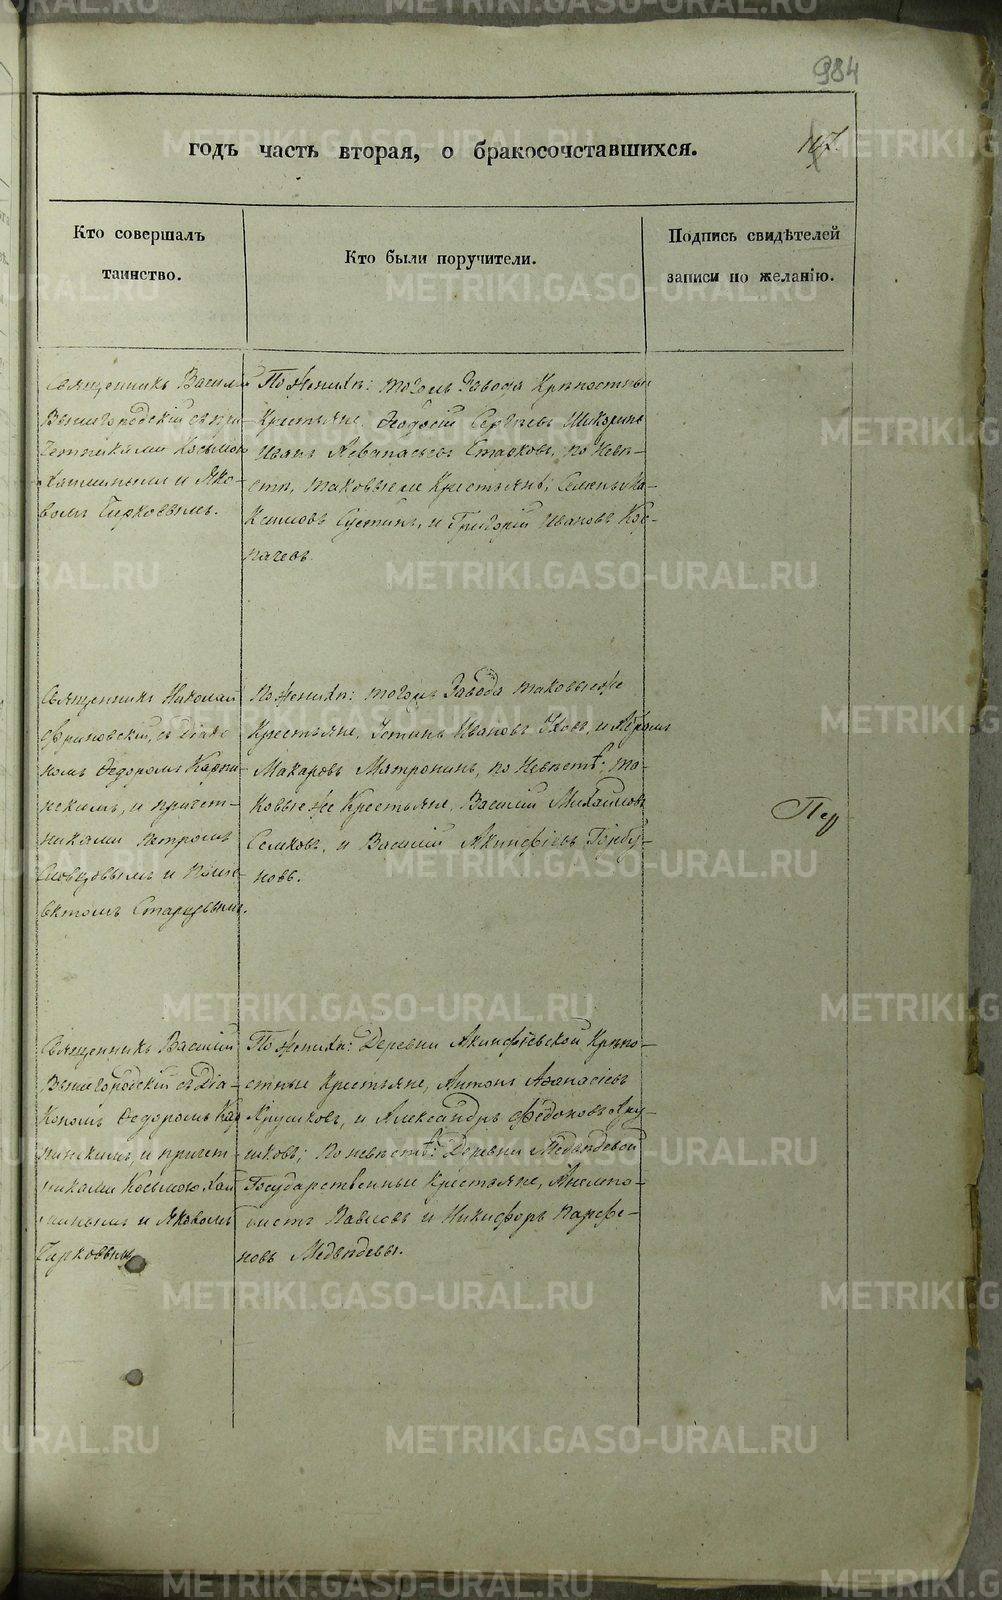 984
годъ часть вторая, о бракосочетавшихся.
167.
Кто совершалъ
таинство.
Кто были поручители.
Подпись свидѣтелей
записи по желанію.
Священникъ Василій
Вышегородскій съ при-
четниками Косьмою
и Яко-
вомъ Чирковымъ.
По женихѣ: того жъ Завода Крѣпостные
Крестьяне, Ѳеодосій Сергѣевъ
Иванъ Аѳанасьевъ Старковъ, по невѣ-
стѣ, таковые же Крестьяне; Семенъ Ма-
ксимовъ Сустинъ, и Григорій Ивановъ Кос-
пачевъ.
Священникъ Николай
съ Діако-
номъ Ѳедоромъ Карпи-
нскимъ, и причет-
никами Петромъ
Словцовымъ и Поли-
ектомъ Старцевымъ.
По женихѣ: того жъ Завода таковые же
Крестьяне, Устинъ Ивановъ и Абрамъ
Макаровъ Матронинъ, по невѣстѣ: та-
ковые же Крестьяне, Василій Михайловъ
Семковъ, и Василій Акинфіевъ Горбу-
новъ.
Пер
Священникъ Василій
Вышегородскій съ Діа-
кономъ Ѳедоромъ Кар
пинскимъ, и причет-
никами Косьмою
и Яковомъ
Чирковымъ
По женихѣ: Деревни Акинфіевской Крѣпо-
стные Крестьяне, Антонъ Аѳанасіевъ
Ярушковъ, и Александръ Ѳедоровъ Яру-
шковъ; По невѣстѣ: Деревни Медвѣдевой
Государственные Крестьяне,
Павловъ и Никифоръ Парфе-
новъ Медвѣдевы.
METRIKI.GASO-URAL.RU